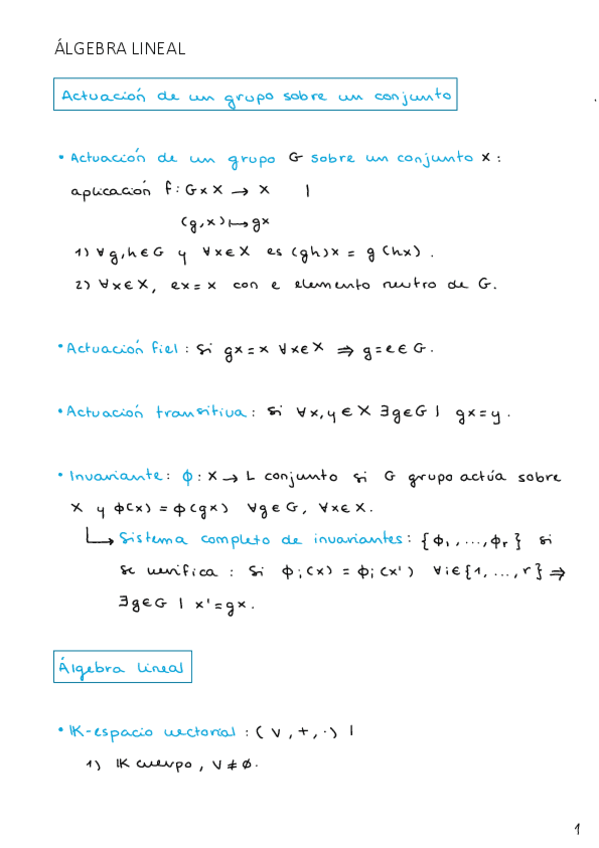 ÁLGEBRA LINEAL
Actuación de un grupo sobre un conjunto
• Actuación de un grupo G sobre un conjunto X :
aplicación f: G x X → X |
(g,x) ↦ gx
1) ∀g,h ∈ G y ∀x ∈ X es (gh)x = g(hx).
2) ∀x ∈ X, ex = x con e elemento neutro de G.
• Actuación fiel : Si gx = x ∀x ∈ X ⇒ g = e ∈ G.
• Actuación transitiva : Si ∀x,y ∈ X ∃g ∈ G | gx = y.
• Invariante : ϕ : X → L conjunto si G grupo actúa sobre
X y ϕ(x) = ϕ(gx) ∀g ∈ G, ∀x ∈ X.
↳ Sistema completo de invariantes : {ϕ₁, ..., ϕᵣ} si
se verifica : Si ϕᵢ(x) = ϕᵢ(x') ∀i ∈ {1, ..., r} ⇒
∃g ∈ G | x' = gx.
Álgebra lineal
• IK-espacio vectorial : (V, +, ·) |
1) IK cuerpo, V ≠ ∅.
1